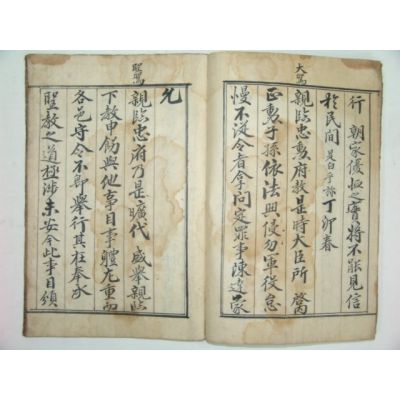 行 朝家優恤之實將不能見信
於民間是白乎旀丁卯春
大駕
親臨忠勳府教是時大臣所 啓
正勳子孫依法興侵勿軍役怠
慢不從令者拿問定罪事陳達蒙
允
聖駕
親臨忠府乃是曠代 盛擧親臨
下教申飭與他事目事體尤重而
各邑守令不卽擧行其在奉承
聖教之道極涉未安今此事目頒